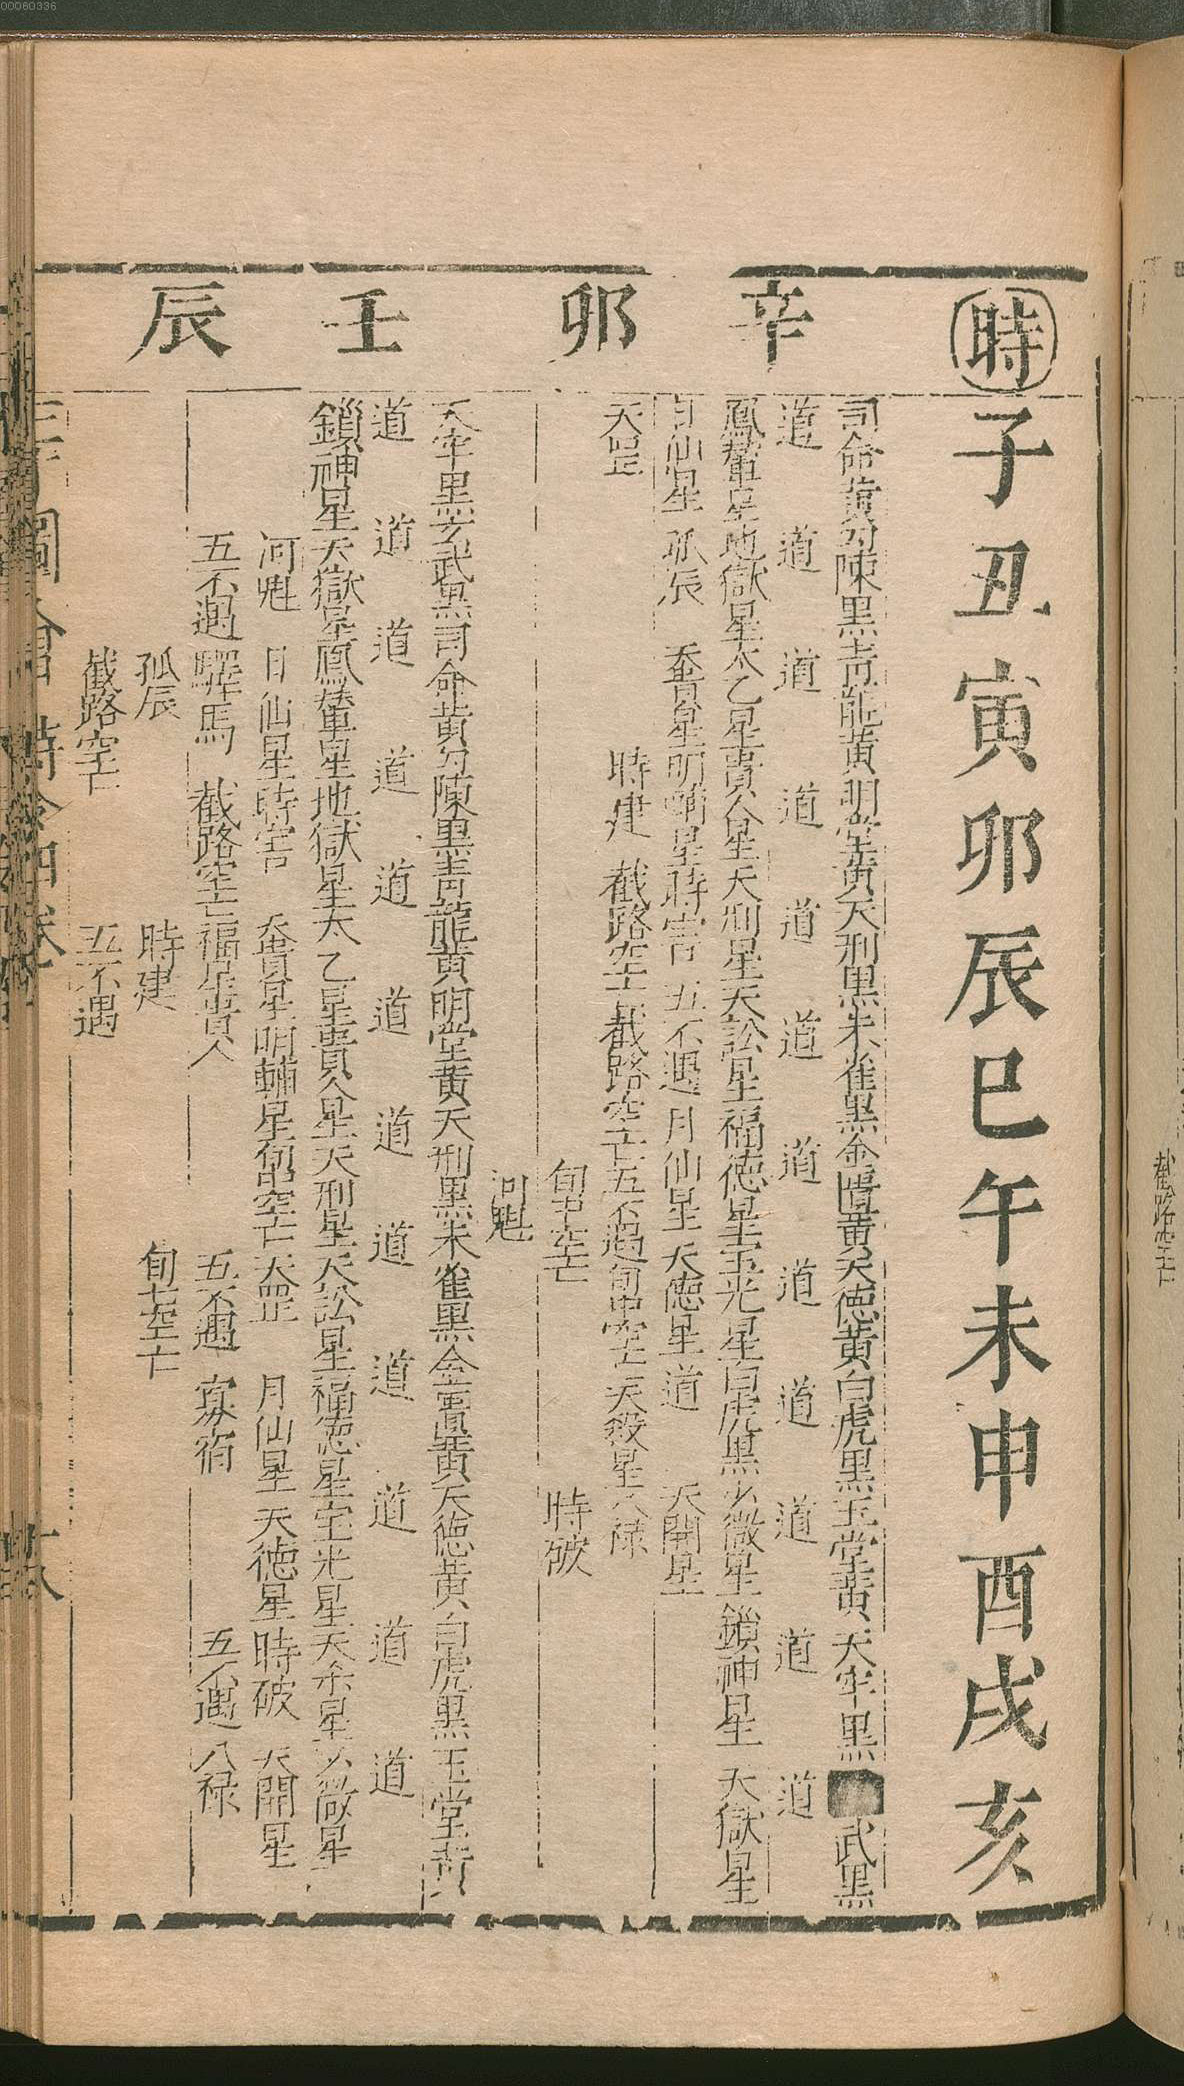 00060336
時子丑寅卯辰巳午未申酉戌亥
辛卯
司命黃勾陳黑青龍黃明堂黃天刑黑朱雀黑金匱黃天德黃白虎黑玉堂黃天牢黑武黑
道道道道道道道道道道道道
鳳輦星地獄星太乙星貴人星天刑星天訟星福德星寶光星白虎黑少微星鎖神星天獄星
月仙星孤辰喬貴星明輔星時害五不遇月仙星天德星道天開星
天罡時建截路空亡截路空亡五不遇旬中空亡天殺星八祿
旬中空亡時破
河魁
壬辰
天牢黑玄武黑司命黃勾陳黑青龍黃明堂黃天刑黑朱雀黑金匱黃天德黃白虎黑玉堂黃
道道道道道道道道道道道道
鎖神星天獄星鳳輦星地獄星太乙星貴人星天刑星天訟星福德星寶光星天杀星少微星
河魁月仙星時害喬貴星明輔星旬中空亡天罡月仙星天德星時破天開星
五不遇驛馬截路空亡福星貴人五不遇寡宿五不遇八祿
孤辰時建旬中空亡
截路空亡五不遇
三才圖會時令四卷
截路空亡